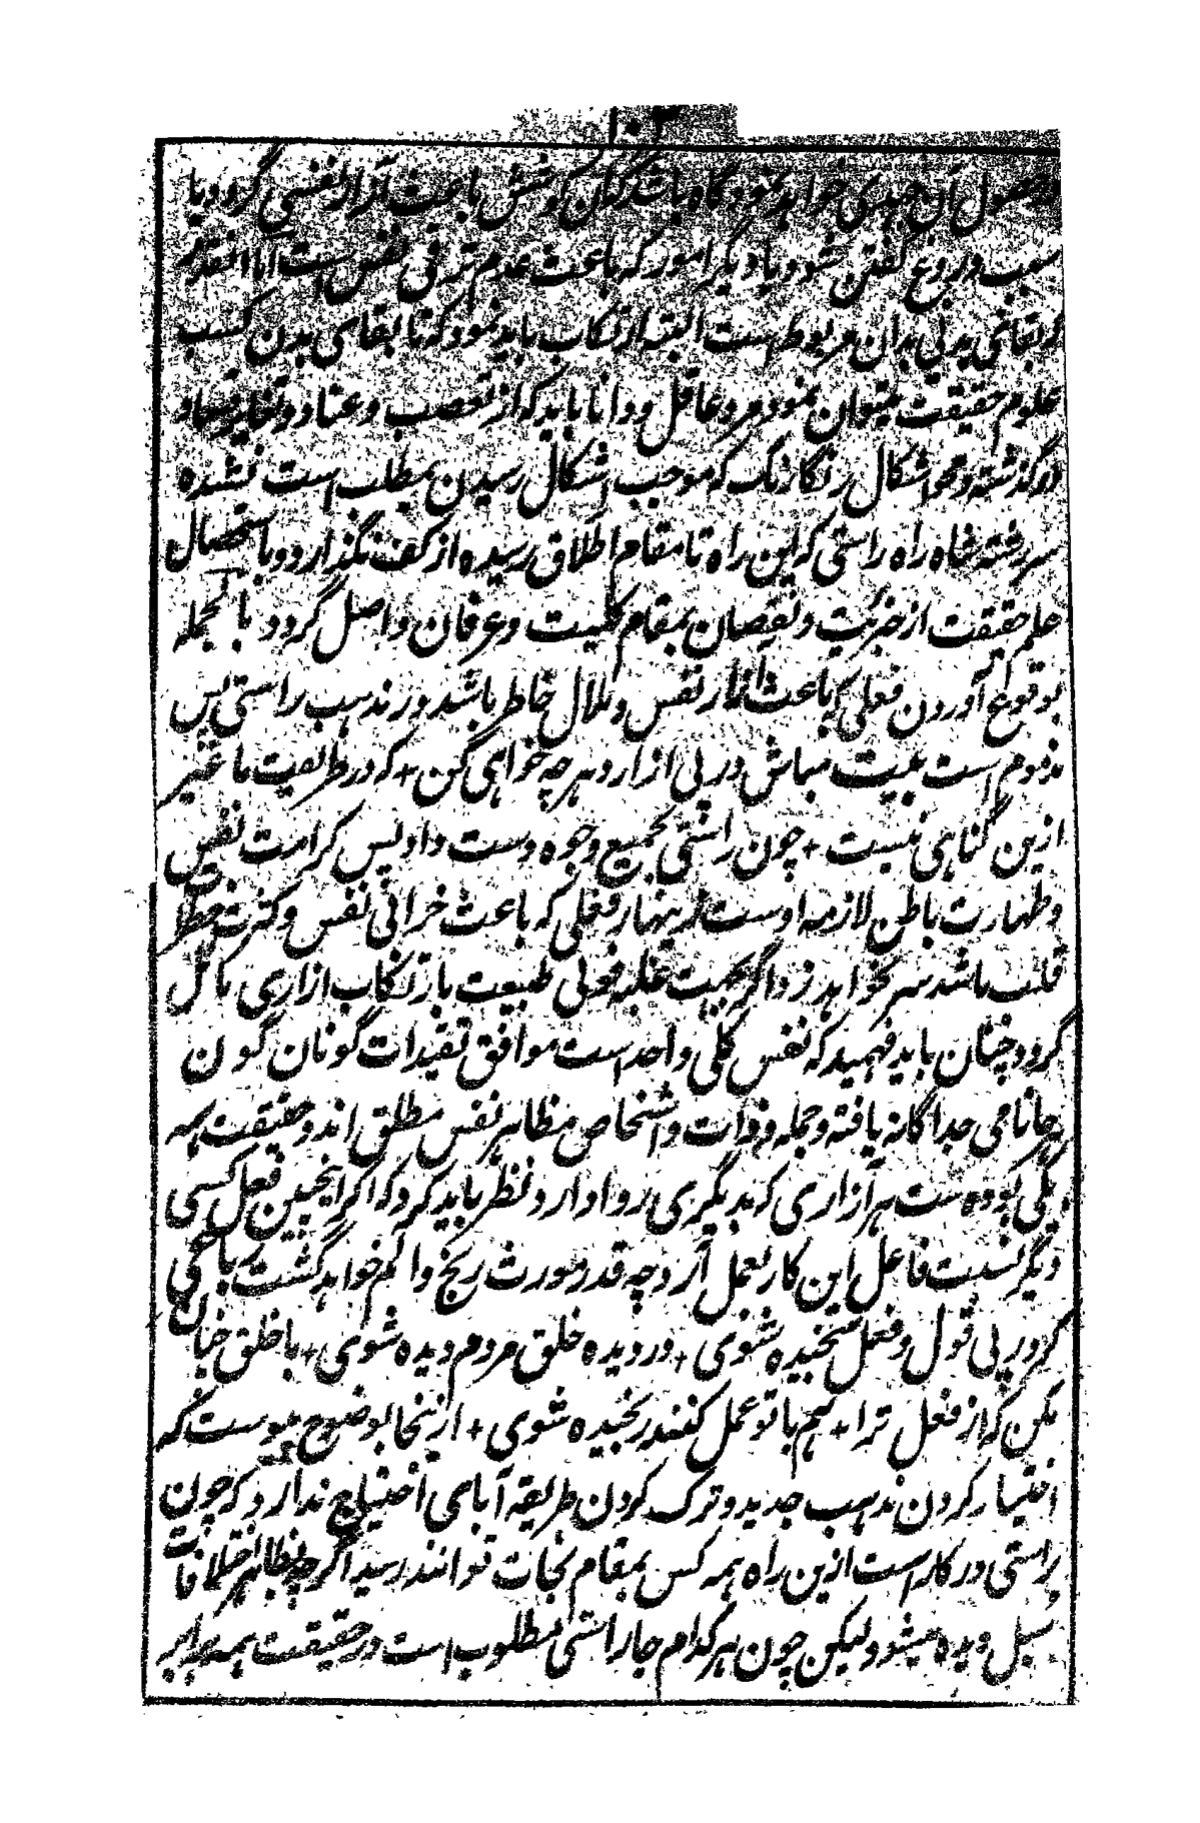 ۱۰۳
حصول آن جهدی خواهد نمود گاه باشد که آن کوشش باعث آزار نفسی گردد یا
سبب دروغ گفتن شود و یا دیگر امور که باعث عدم ترقی نفس است اما آنقدر
که بقای بدنی بدان مربوط است البته ارتکاب باید نمود که تا بقای بدن کسب
علوم حقیقت میتوان نمود مرد عاقل و دانا باید که از تعصب و عناد و
در گذشته و محو اشکال رنگارنگ که موجب اشکال رسیدن بمطلب است نشده
سررشته شاه راه راستی که این راه تا مقام اطلاق رسیده از کف نگذارد و باستحصال
علم حقیقت از جزئیت و نقصان بمقام کلیت و عرفان واصل گردد بالجمله
بوقوع آوردن فعلی که باعث آزار نفس و ملال خاطر باشد در مذهب راستی بس
مذموم است بیت مباش در پی آزار و هر چه خواهی کن + که در طریقت ما غیر
ازین گناهی نیست + چون راستی بجمیع وجوه دست داد پس کرامت نفس
و طهارت باطن لازمه اوست زینهار فعلی که باعث خرابی نفس و کثرت خطر
قلب باشد سر نخواهد زد و اگر بجهت غلبه طبیعت بارتکاب آزاری مائل
گردد چنان باید فهمید که نفس کلی واحد است موافق تقیدات گونان گون
هر جا نامی جداگانه یافته و جمله ذوات و اشخاص مظاهر نفس مطلق اند و حقیقت همه
یکی بوده است هر آزاری که بدیگری روا دارد نظر باید کرد که اگر اینچنین فعل کسی
دیگر نسبت فاعل این کار بعمل آرد چه قدر مورث رنج و الم خواهد گشت رباعی
گر در پی قول و فعل سنجیده شوی + در دیده خلق مردم دیده شوی + با خلق چنان
مکن که از فعل ترا + هم با تو عمل کنند رنجیده شوی + ازینجا بوضوح پیوست که
اختیار کردن مذهب جدید و ترک کردن طریقه آبای احتیاج ندارد که چون
راستی در کار است ازین راه همه کس بمقام نجات توانند رسید اگر چه بظاهر اختلافات
سبل دیده میشود لیکن چون هر کدام جا راستی مطلوب است در حقیقت همه برابر